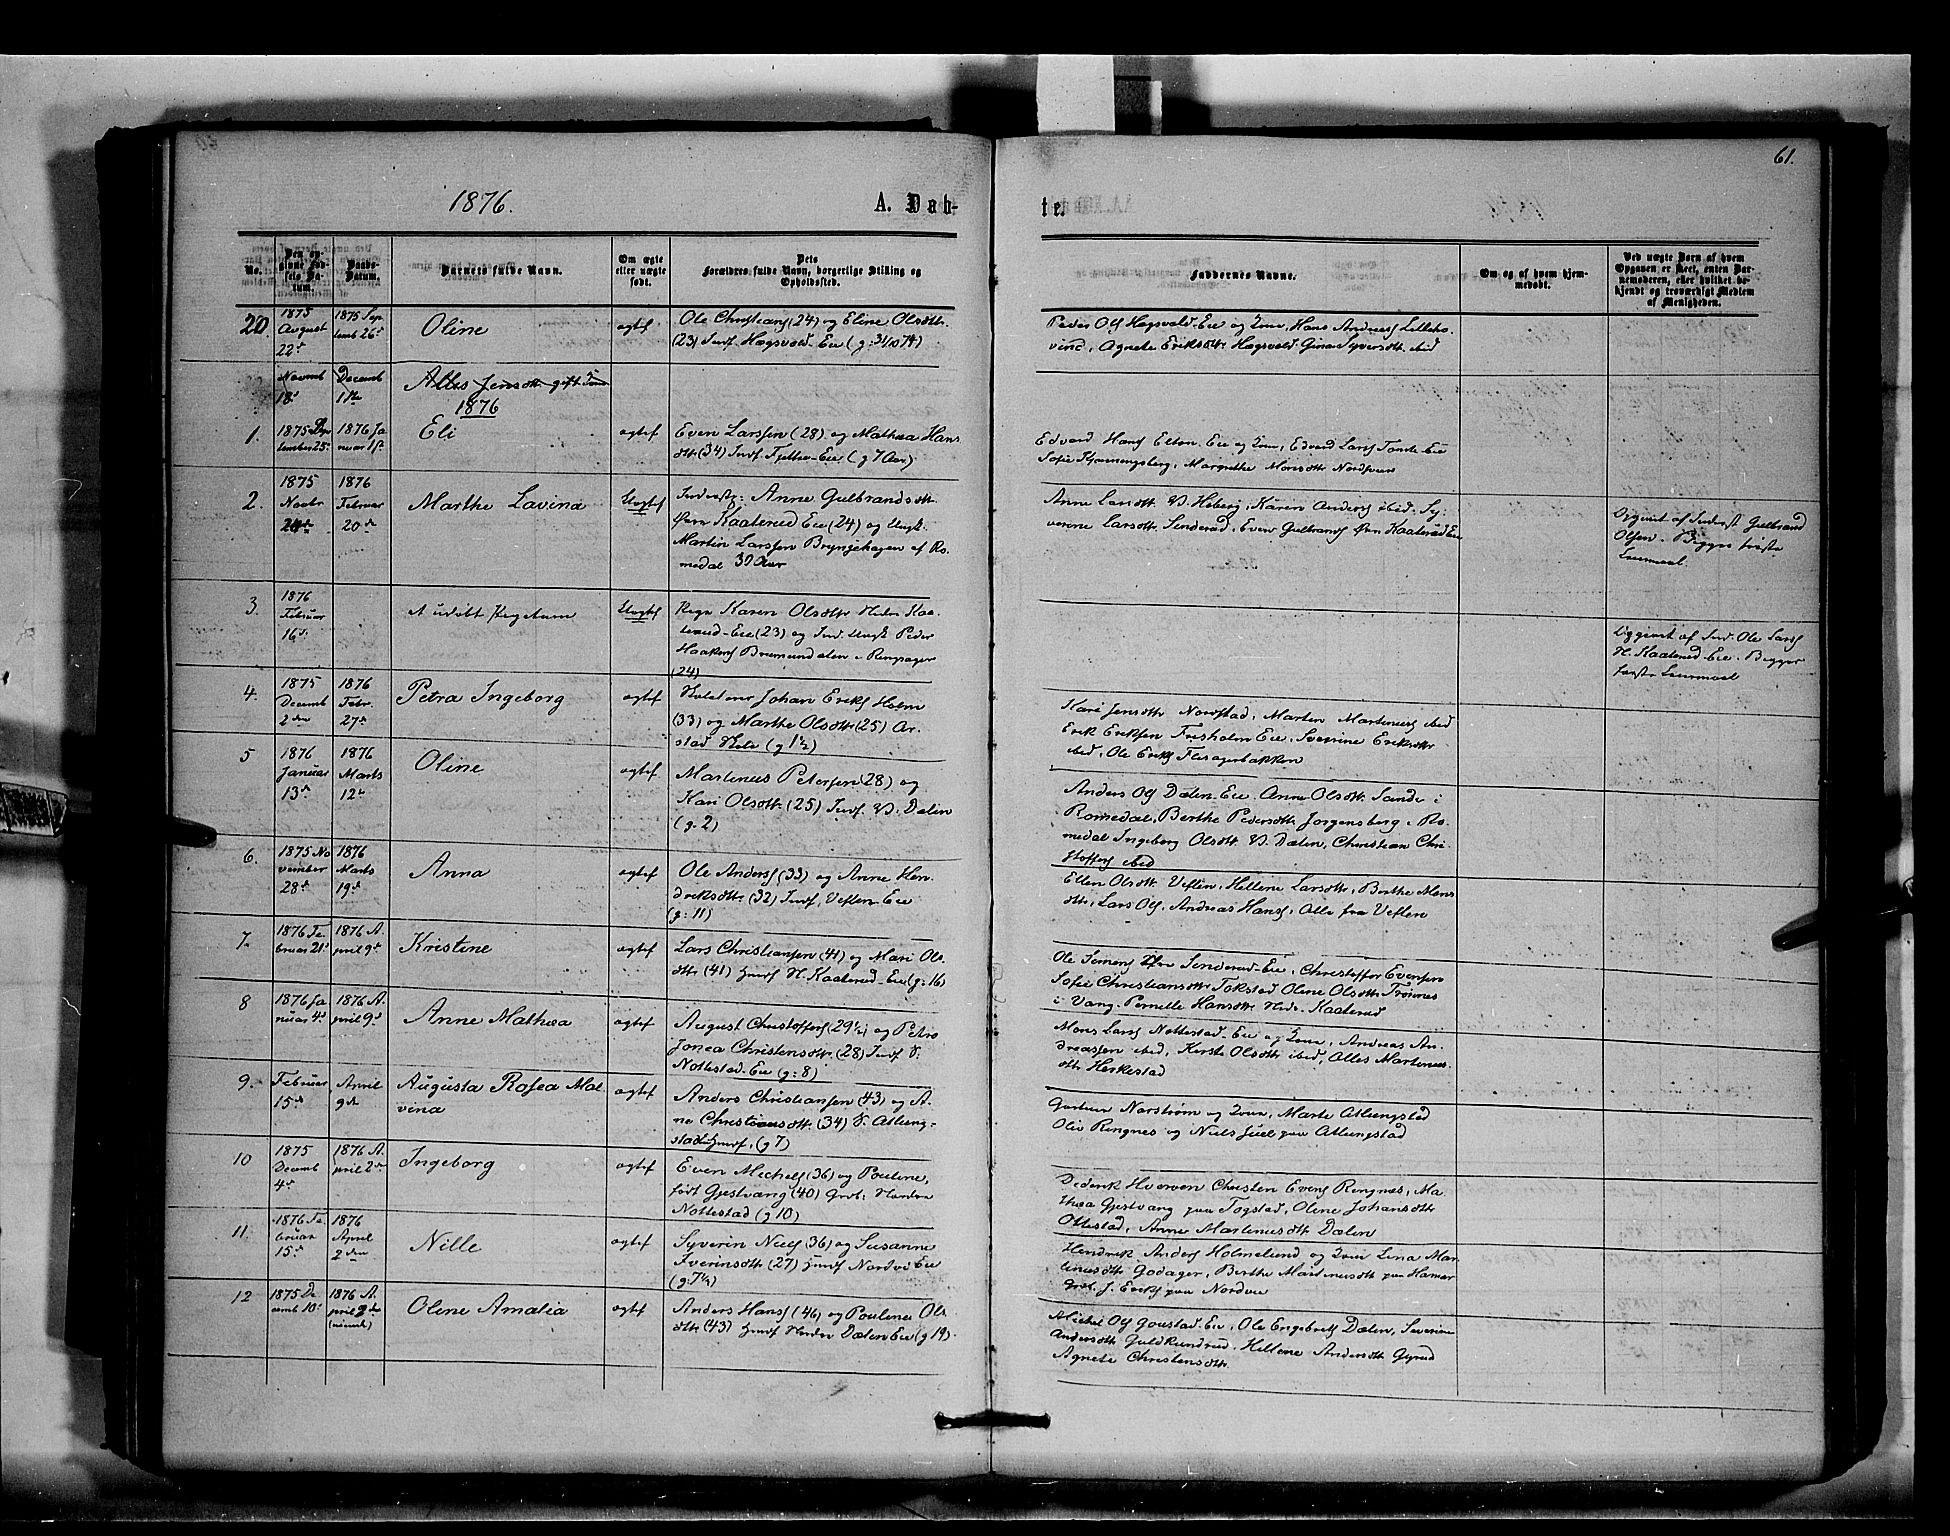 61.
1876.
A. Døb-
te.
No.
Den op-
givne Fød-
sels Da-
tum.
Daabs-
Datum.
Barnets fulde Navn.
Om ægte
eller uægte
født.
Dets
Forældres fulde Navn, borgerlige Stilling og
Opholdssted.
Faddernes Navne.
Om og af hvem hjem-
medøbt.
Ved uægte Børn af hvem
Opgaven er skeet, enten Bar-
nemoderen, eller hvilket be-
kjendt og troværdigt Medlem
af Menigheden.
20.
1875
August
22d
1875 Sep
temb 26d
Oline
ægtef
Ole Christians (24) og Eline Olsdttr.
(23) Indf. Hægsvold-Eie (g: 31/10 74)
Peder Ols Hægsvold-Eie og Kone, Hans Andreas Lilleho-
vind, Agnete Eriksdttr Hægsvold, Gina Syversdttr ibid
Novemb
18d
Decemb
Alles Jensdttr gift
1876
1.
1875
tember 25d
1876 Ja
nuar
Eli
ægtef
Even Larssen (28) og Mathea Hans
dttr (34) Indf. Fjetha-Eie (g 7 Aar)
Edvard Hans Elton Eie og Kone, Edvard Lars Tomte Eie
Sofie Kjæmmengsberg, Margrethe Monsdttr Nordhuus
2.
1875
Novbr
20de
1876
Februar
20de
Marthe Lavina
Uægtef
Inderstp: Anne Gulbrandsdttr.
Øvre Kaaterud Eie (24) og Ungk.
Martin Larssen Bryngehagen af Ro-
medal 30 Aar
Anne Larsdttr V. Hiberg, Karen Anders ibid. Sy-
verine Larsdttr. Senderud, Even Gulbrands Øvre Kaaterud Eie
Opgivet af Inderst Gulbrand
Olsen. Begges første
Leiermaal
3.
1876
Februar
16de
et udøbt Pigebarn
Uægtef
Pige Karen Olsdttr Nedre Kaa-
terud-Eie (23) og Ind. Ungk Peder
Haakens Brumunddalen i Ringsager
(24)
Opgivet af Ind. Ole Lars
N. Kaaterud-Eie. Begges
første Leiermaal
4.
1875
Decemb
2den
1876
Febr.
27d
Petra Ingeborg
ægtef
Johan Eriks Holm
(33) og Marthe Olsdttr (25) Ar-
stad (g 1½)
Kari Jensdttr Nordstad, Marten Martinius ibid
Erik Eriksen Fresholm Eie, Severine Eriksdttr
ibid, Ole Eriks Flisagerbakken
5
1876
Januar
13d
1876
Marts
12te
Oline
ægtef
Martinus Petersen (28) og
Kari Olsdttr. (25) Indf. V. Dælin
(g. 2)
Anders Ols Dælen-Eie. Anne Olsdttr. Sande i
Romedal, Berthe Pedersdttr Jorgensberg i Ro-
medal Ingeborg Olsdttr V. Dælin, Christian Chri-
stoffers ibid
6.
1875 No
vember
28d
1876
Marts
19d
Anna
ægtef
Ole Anders (33) og Anne Hen-
driksdttr (32) Indf, Veflen Eie
(g: 11)
Ellen Olsdttr Veflin, Hellene Larsdttr, Berthe Mons-
dttr, Lars Ols, Andreas Hans, Alle fra Veflen
7.
1876 Fe
bruar 21d
1876 A.
pril 9d
Kristine
ægtef
Lars Christiansen (41) og Mari Ols-
dttr (41) Huusf N. Kaaterud-Eie (g: 16)
Ole Simens Øvre Senderud-Eie, Christoffor Evensen
Sofie Christiansdttr Tokstad Oline Olsdttr Trøinnes
i Vang. Pernille Hansdttr. Nedr. Kaaterud
8
1876 Ja
nuar 4d
1876 A.
pril 9d
Anne Mathea
ægtef
August Christoffers (29½) og Petra
Jonea Christensdttr (28) Indf S.
Nottestad-Eie (g: 8)
Mons Lars Nottestad-Eie og Kone, Andreas An-
dreassen ibid, Kersti Olsdttr ibid, Alles Martinus-
dttr Herkestad
9.
Februar
15d
April
9de
Augusta Rosea Mal-
vina
ægtef
Anders Christiansen (43) og A-
ne Christiansdttr (34) S. Atlung-
stad Huusf. (g 7)
Gartner Norstrøm og Kone, Marte Atlungstad
Oliv Ringnes og Niels Juel paa Atlungstad
10
1875
Decemb
4d
1876 A.
pril 2de
Ingeborg
ægtef
Even Michels (36) og Pouline,
født Gjestvang (40) Grdb: Nordre
Nottestad (g 10)
Diderik Hverven Christen Evens Ringnes, Ma-
thea Gjestvang paa Togstad, Oline Johansdttr
Ottestad, Anne Martinusdttr Dælen
11
1876 Fe
bruar
15d
1876
April
2den
Nille
ægtef
Syverin Niels (36) og Susanne
Iverinsdttr (27) Huusf Nordvi Eie
(g: 7½)
Hendrik Anders Holmelund og Kone Lina Mar-
tinusdttr Godager, Berthe Martinusdttr paa Hamar
Grdb. J. Eriks paa Nordvie
12
1875 De
cemb 10d
1876 A.
pril 2de
Oline Amalia
ægtef
Anders Hans (46) og Pouline Ols-
dttr (43) Huusf Nordre Dælen Eie (g 19).
Michel Ols Goustad-Eie, Ole Engebrets Dælen, Severine
Andersdttr Guldkundrud, Hellene Andersdttr Gyrud
Agnete Christensdttr.